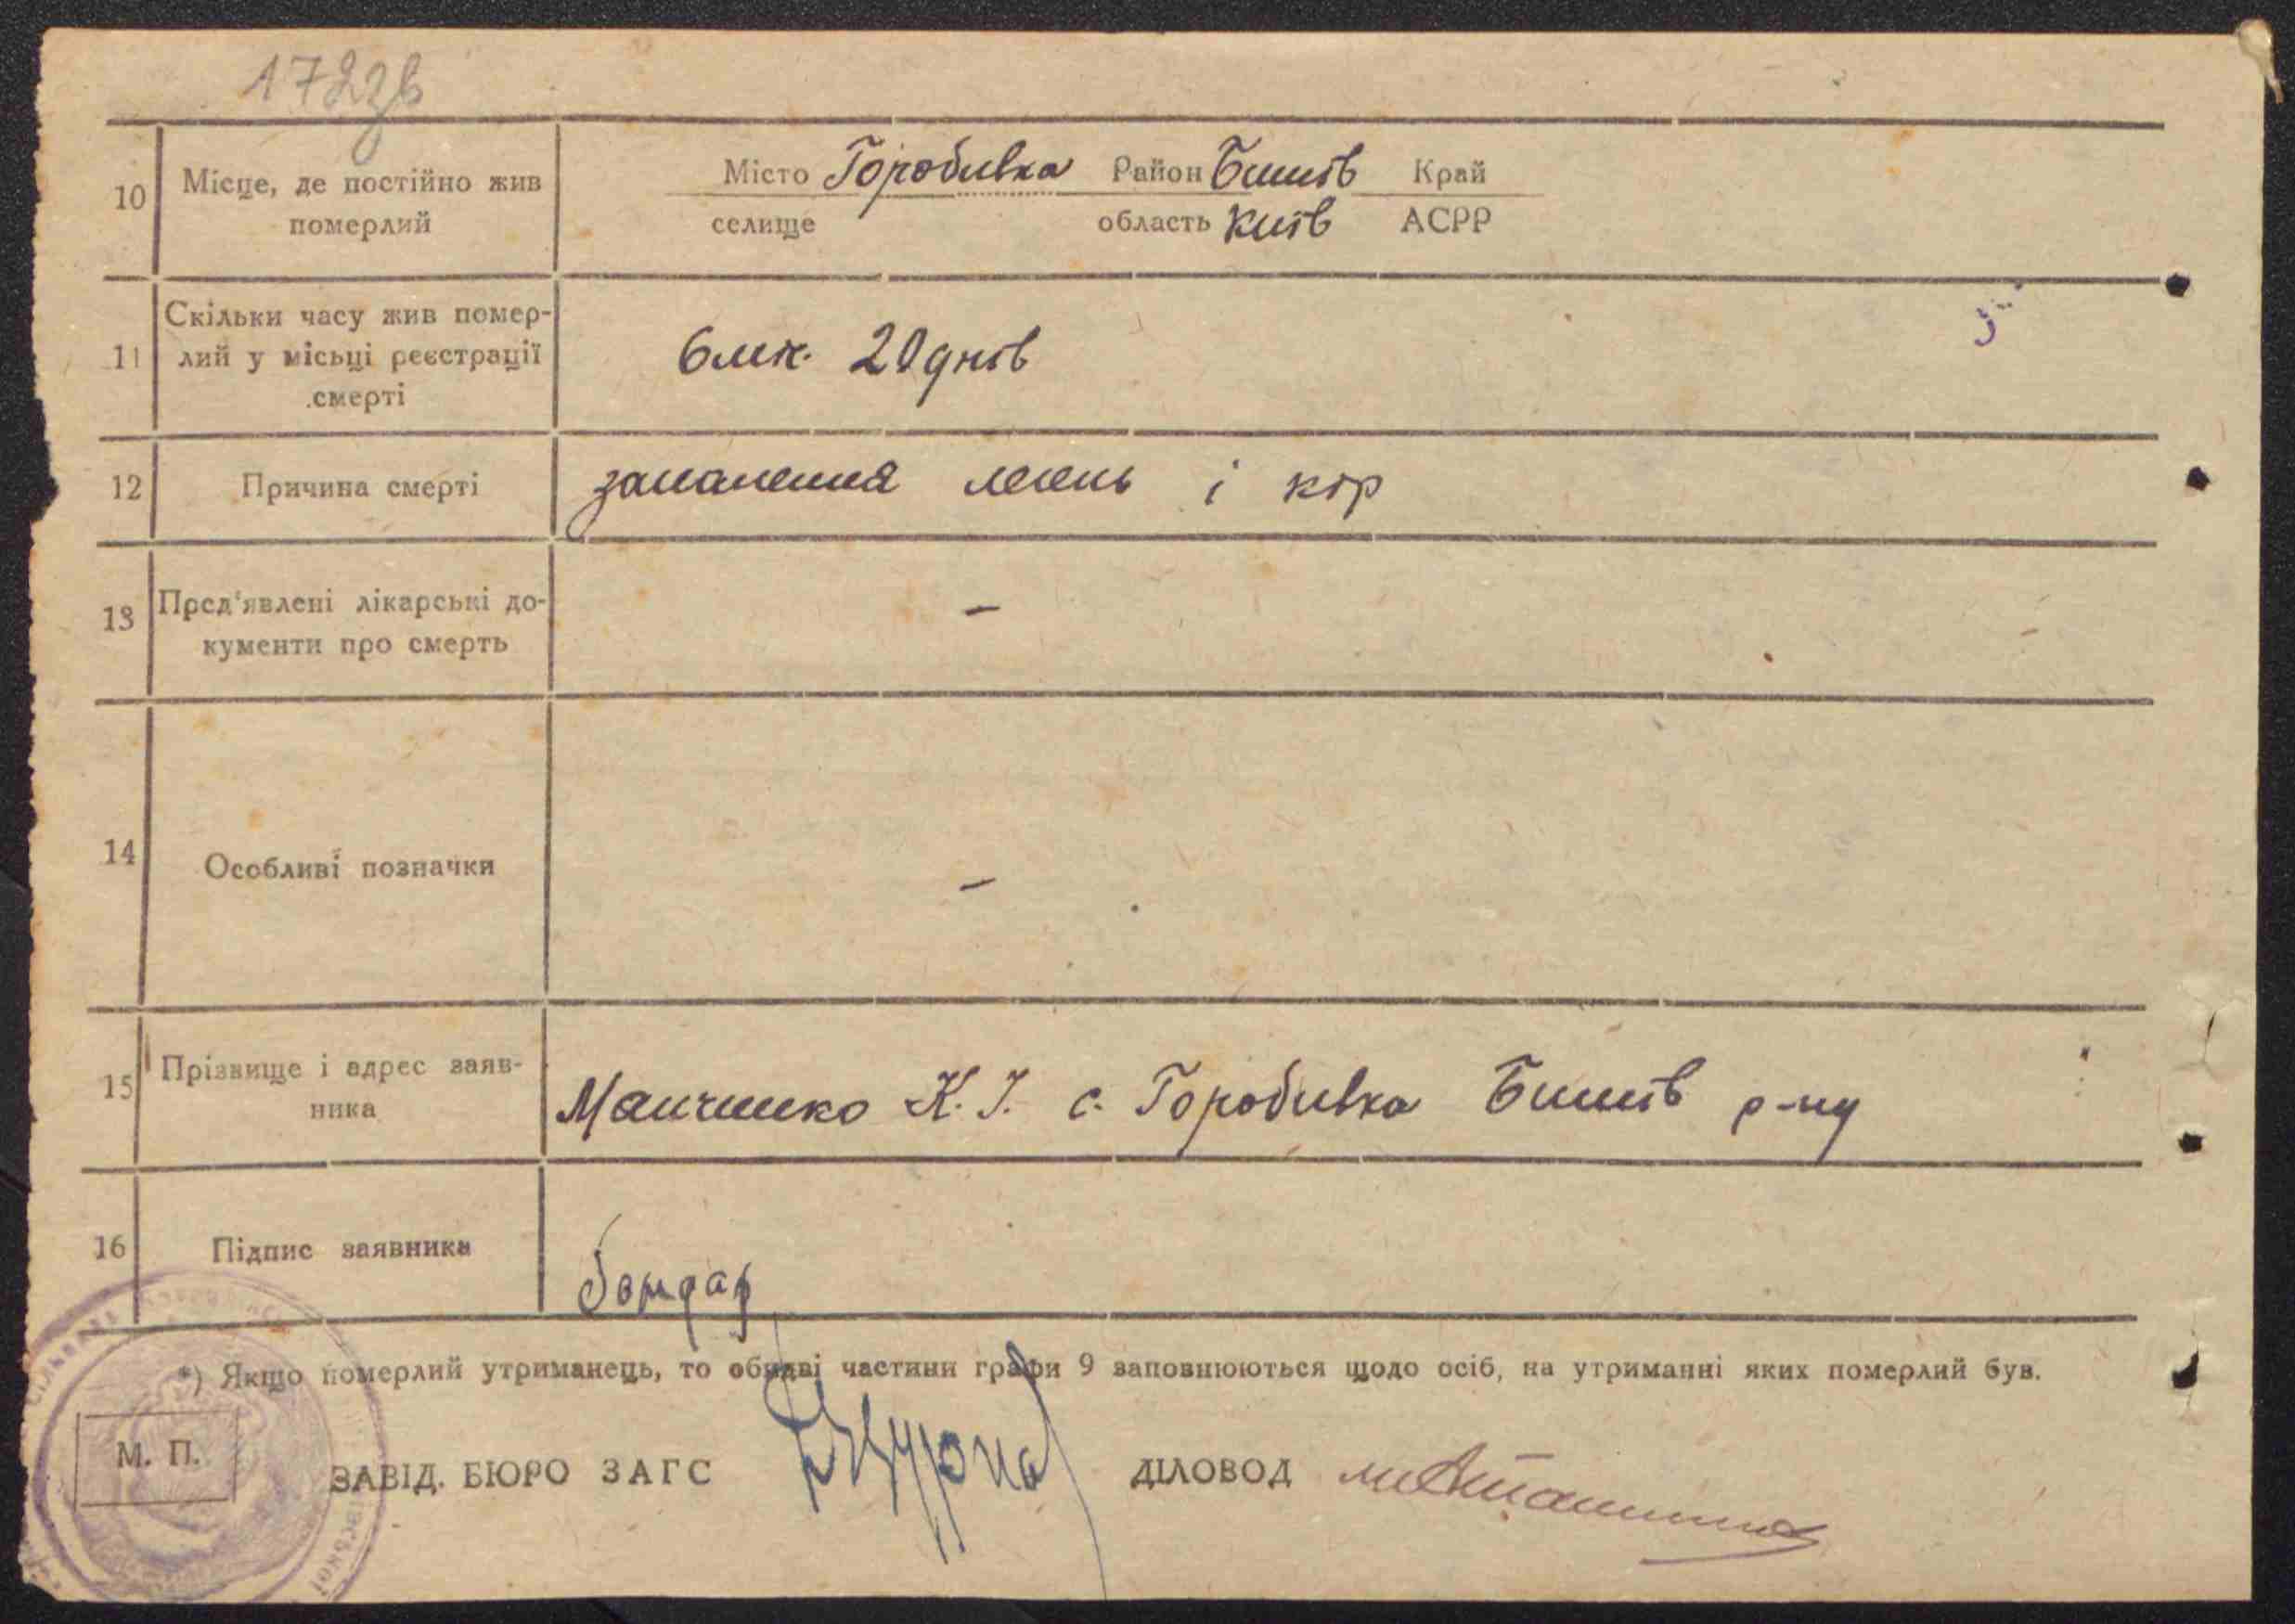 172зв
10 Місце, де постійно жив померлий
Місто Горобивка Район Бишів Край
селище область Київ АСРР
11 Скільки часу жив помер-
лий у місьці реєстрації
смерті
6 міс. 20 днів
12 Причина смерті запалення легень і кір
13 Пред'явлені лікарські до-
кументи про смерть
–
14 Особливі позначки –
15 Прізвище і адрес заяв-
ника
К. І. с. Горобивка Бишів р-ну
16 Підпис заявника
Бондар
*) Якщо померлий утриманець, то обидві частини графи 9 заповнюються щодо осіб, на утриманні яких померлий був.
М. П.
ЗАВІД. БЮРО ЗАГС ДІЛОВОД